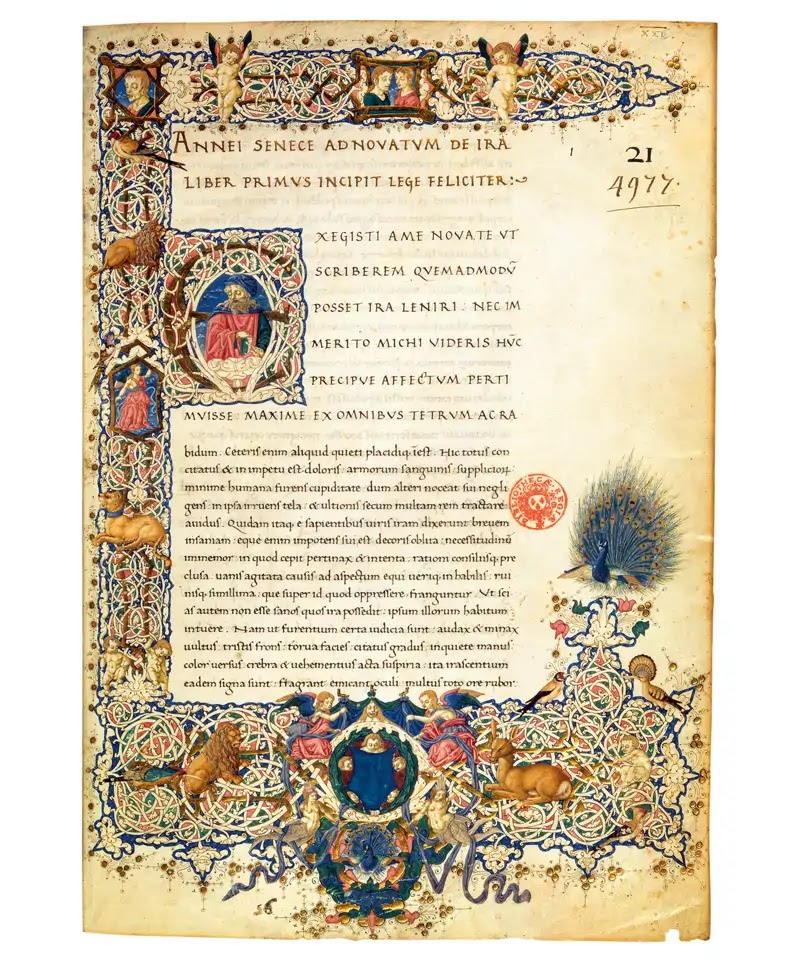 ANNEI SENECE AD NOVATVM DE IRA
LIBER PRIMVS INCIPIT LEGE FELICITER:
21
4977.
EXEGISTI A ME NOVATE VT
SCRIBEREM QVEMADMODŪ
POSSET IRA LENIRI : NEC IM
MERITO MICHI VIDERIS HVC
PRECIPVE AFFECTVM PERTI
MVISSE : MAXIME EX OMNIBVS TETRVM AC RA
bidum. Ceteris enim aliquid quieti placidiq; īest. Hic totus con
citatus & in impetu est doloris: armorum sanguinis: supplicioꝝ
minime humana furens cupiditate: dum alteri noceat sui negli
gens: in ipsa irruens tela: & ultionis secum multam rem tractare
auidus. Quidam itaq; e sapientibus uiris iram dixerunt breuem
insaniam: eque enim impotens sui est: decoris oblita: necessitudinū
immemor: in quod cepit pertinax & intenta: rationi consiliisq; pre
clusa: uanis agitata causis: ad aspectum equi ueriq; inhabilis: rui
nisq; simillima: que super id quod oppressere: franguntur. Vt sci
as autem non esse sanos quos ira possedit: ipsum illorum habitum
intuere. Nam ut furentium certa iudicia sunt: audax & minax
uultus: tristis frons: torua facies: citatus gradus: inquiete manus:
color uersus: crebra & uehementius acta suspiria: ita irascentium
eadem signa sunt: flagrant emicant oculi: multus toto ore rubor
BIBLIOTHECAE REGIAE
56